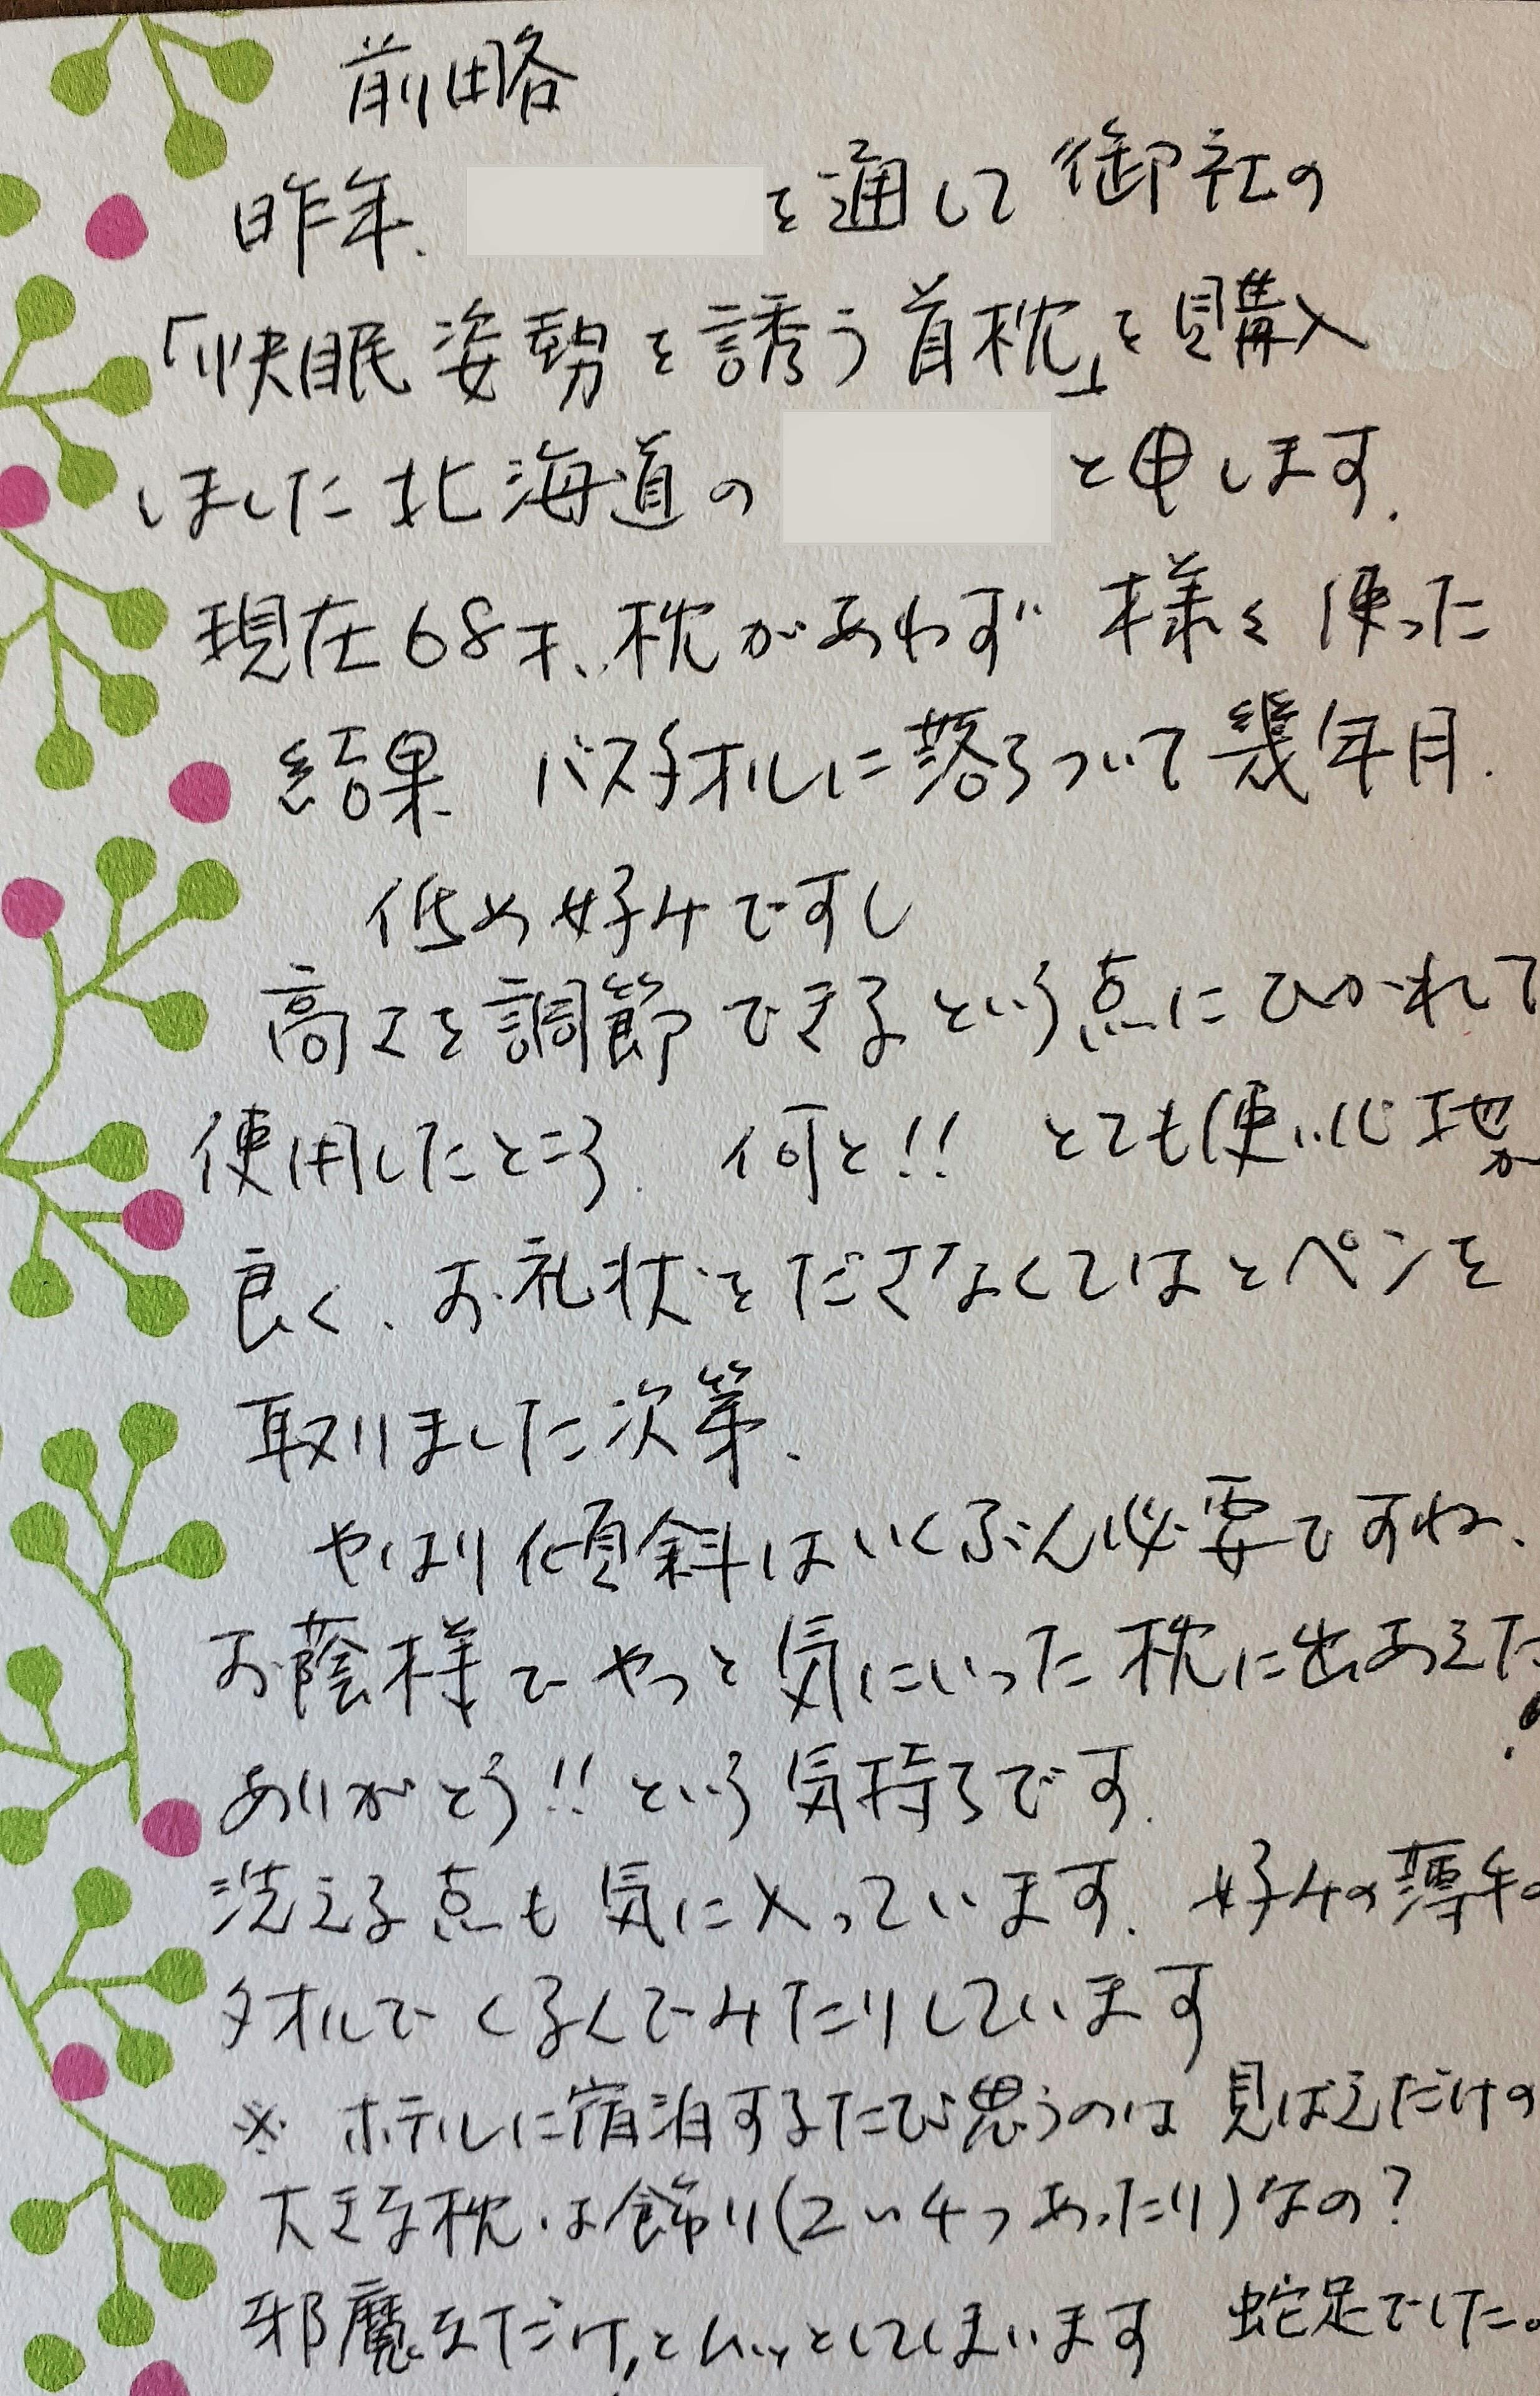 前略
昨年、を通して御社の
「快眠姿勢を誘う首枕」を購入
しました北海道のと申します。
現在68才、枕があわず様々使った
結果 バスタオルに落ちついて幾年月.
低め好みですし
高さを調節できるという点にひかれて
使用したところ. 何と!! とても使い心地が
良く、お礼状をださなくてはとペンを
取りました次第、
やはり傾斜はいくぶん必要ですね、
お蔭様でやっと気にいった枕に出あえた!
ありがとう!!という気持ちです.
洗える点も気に入っています. 好みの薄手の
タオルでくるんでみたりしています
※ ホテルに宿泊するたび思うのは 見ばえだけの
大きな枕は飾り(2〜4つあったり)なの?
邪魔なだけ、とムッとしてしまいます 蛇足でした。